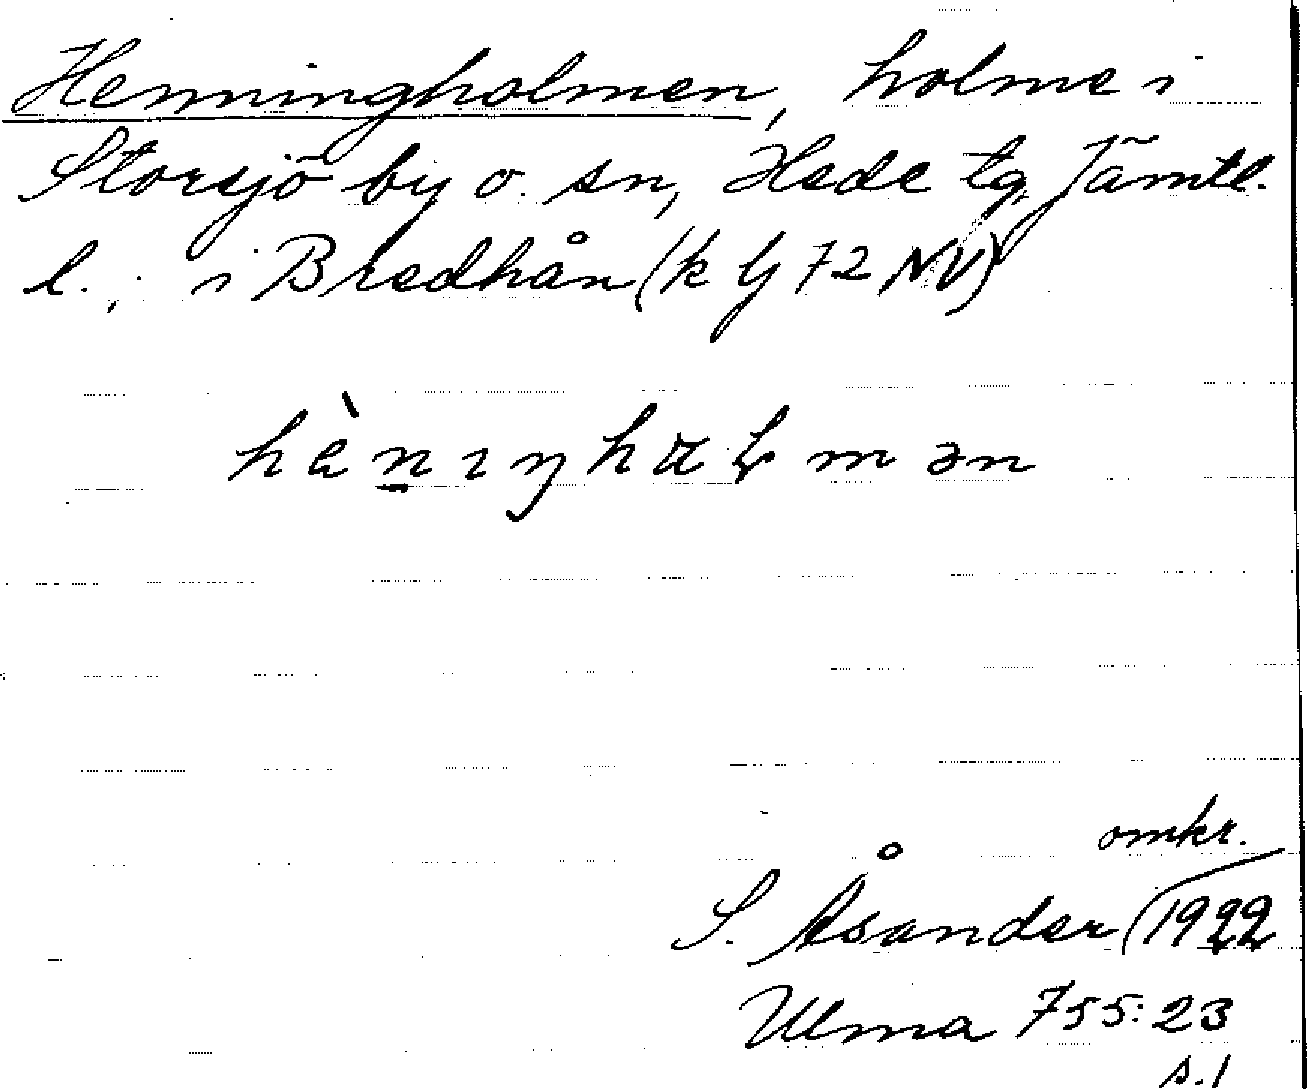 Henningholmen, holme i
Storsjö by o. sn, Hede tg Jämtl.
l., i Bredhån (k Lj 72 NV)
omkr.
S. Åsander (1922
Ulma 755:23
s.1